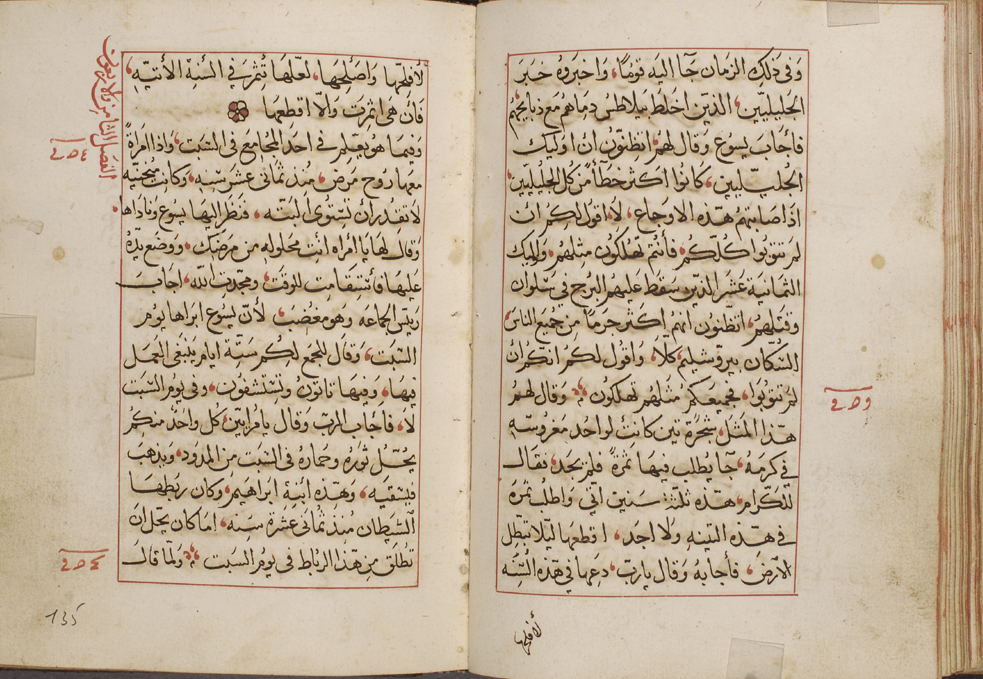 وفى ذلك الزمان جا اليه قوماً، واخبروه خبر
الجليليين، الذين اخلط بيلاطس دماهم مع ذبايحهم
فاجاب يسوع وقال لهم، اتظنون ان اوليك
الجليليين، كانوا اكثر خطأ من كل الجليليين
اذ اصابتهم هذه الاوجاع، لا، اقول لكم ان
لم تتوبوا كلكم، فانتم تهلكون مثلهم، واوليك
الثمانية عشر الذين سقط عليهم البرج فى سلوان
وقتلهم، اتظنون انهم اكثر جرماً من جميع الناس
السكان بيروشليم، كلا، واقول لكم انكم ان
لم تتوبوا، فجميعكم مثلهم تهلكون، وقال لهم
هذا المثل، شجرة تين كانت لواحد مغروسه
فى كرمه، جا يطلب فيها ثمرة، فلم يجد، فقال
للكرام، هذه ثلثة سنين اتى واطلب ثمرة
فى هذه التينه ولا اجد، اقطعها ليلا تبطل
الارض، فأجابه وقال يارب، دعها فى هذه السنه
لافلحها
لأفلحها واصلحها، لعلها تثمر فى السنة الاتيه،
فان هى اثمرت والا اقطعها
وفيما هو يعلم فى احد المجامع فى السبت، واذا امراة
معها روح مرض، منذ ثمانى عشر سنه، وكانت منحنيه
لا تقدر ان تستوى البته، فنظر اليها يسوع وناداها،
وقال لها يا امراه انت محلوله من مرضك، ووضع يده
عليها فأستقامت للوقت، ومجدت الله، اجاب
رييس الجماعه وهو مغضب، لأن يسوع ابراها يوم
السبت، وقال للجمع لكم ستة ايام ينبغى العمل
فيها، وفيها تاتون وتستشفون، وفى يوم السبت
لا، فأجاب الرب وقال يامرايين، كل واحد منكم
يحل ثوره وحماره فى السبت من المدود، ويذهب
فيسقيه، وهذه ابنة ابراهيم، وكان ربطها
الشيطان منذ ثمانى عشرة سنه، اما كان يحل ان
تطلق من هذا الرباط فى يوم السبت، ولما قال
الفصل الثامن والاربعون
135